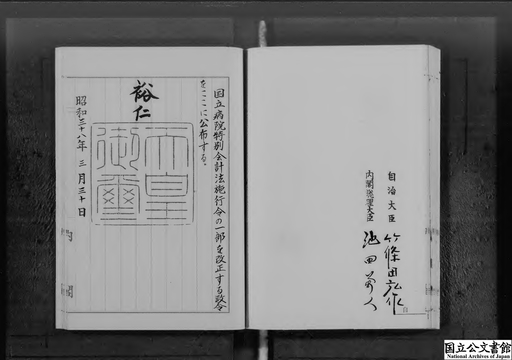 自治大臣
篠田弘作
内閣総理大臣
池田勇人
国立病院特別会計法施行令の一部を改正する政令
をここに公布する。
裕仁
天皇御璽
昭和三十八年 三月三十日
内閣
国立公文書館
National Archives of Japan